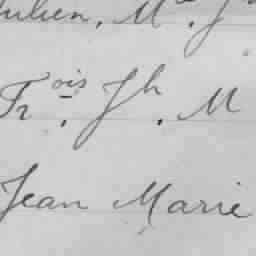 Julien, Mie. J
Frois. Jh. M
Jean Marie